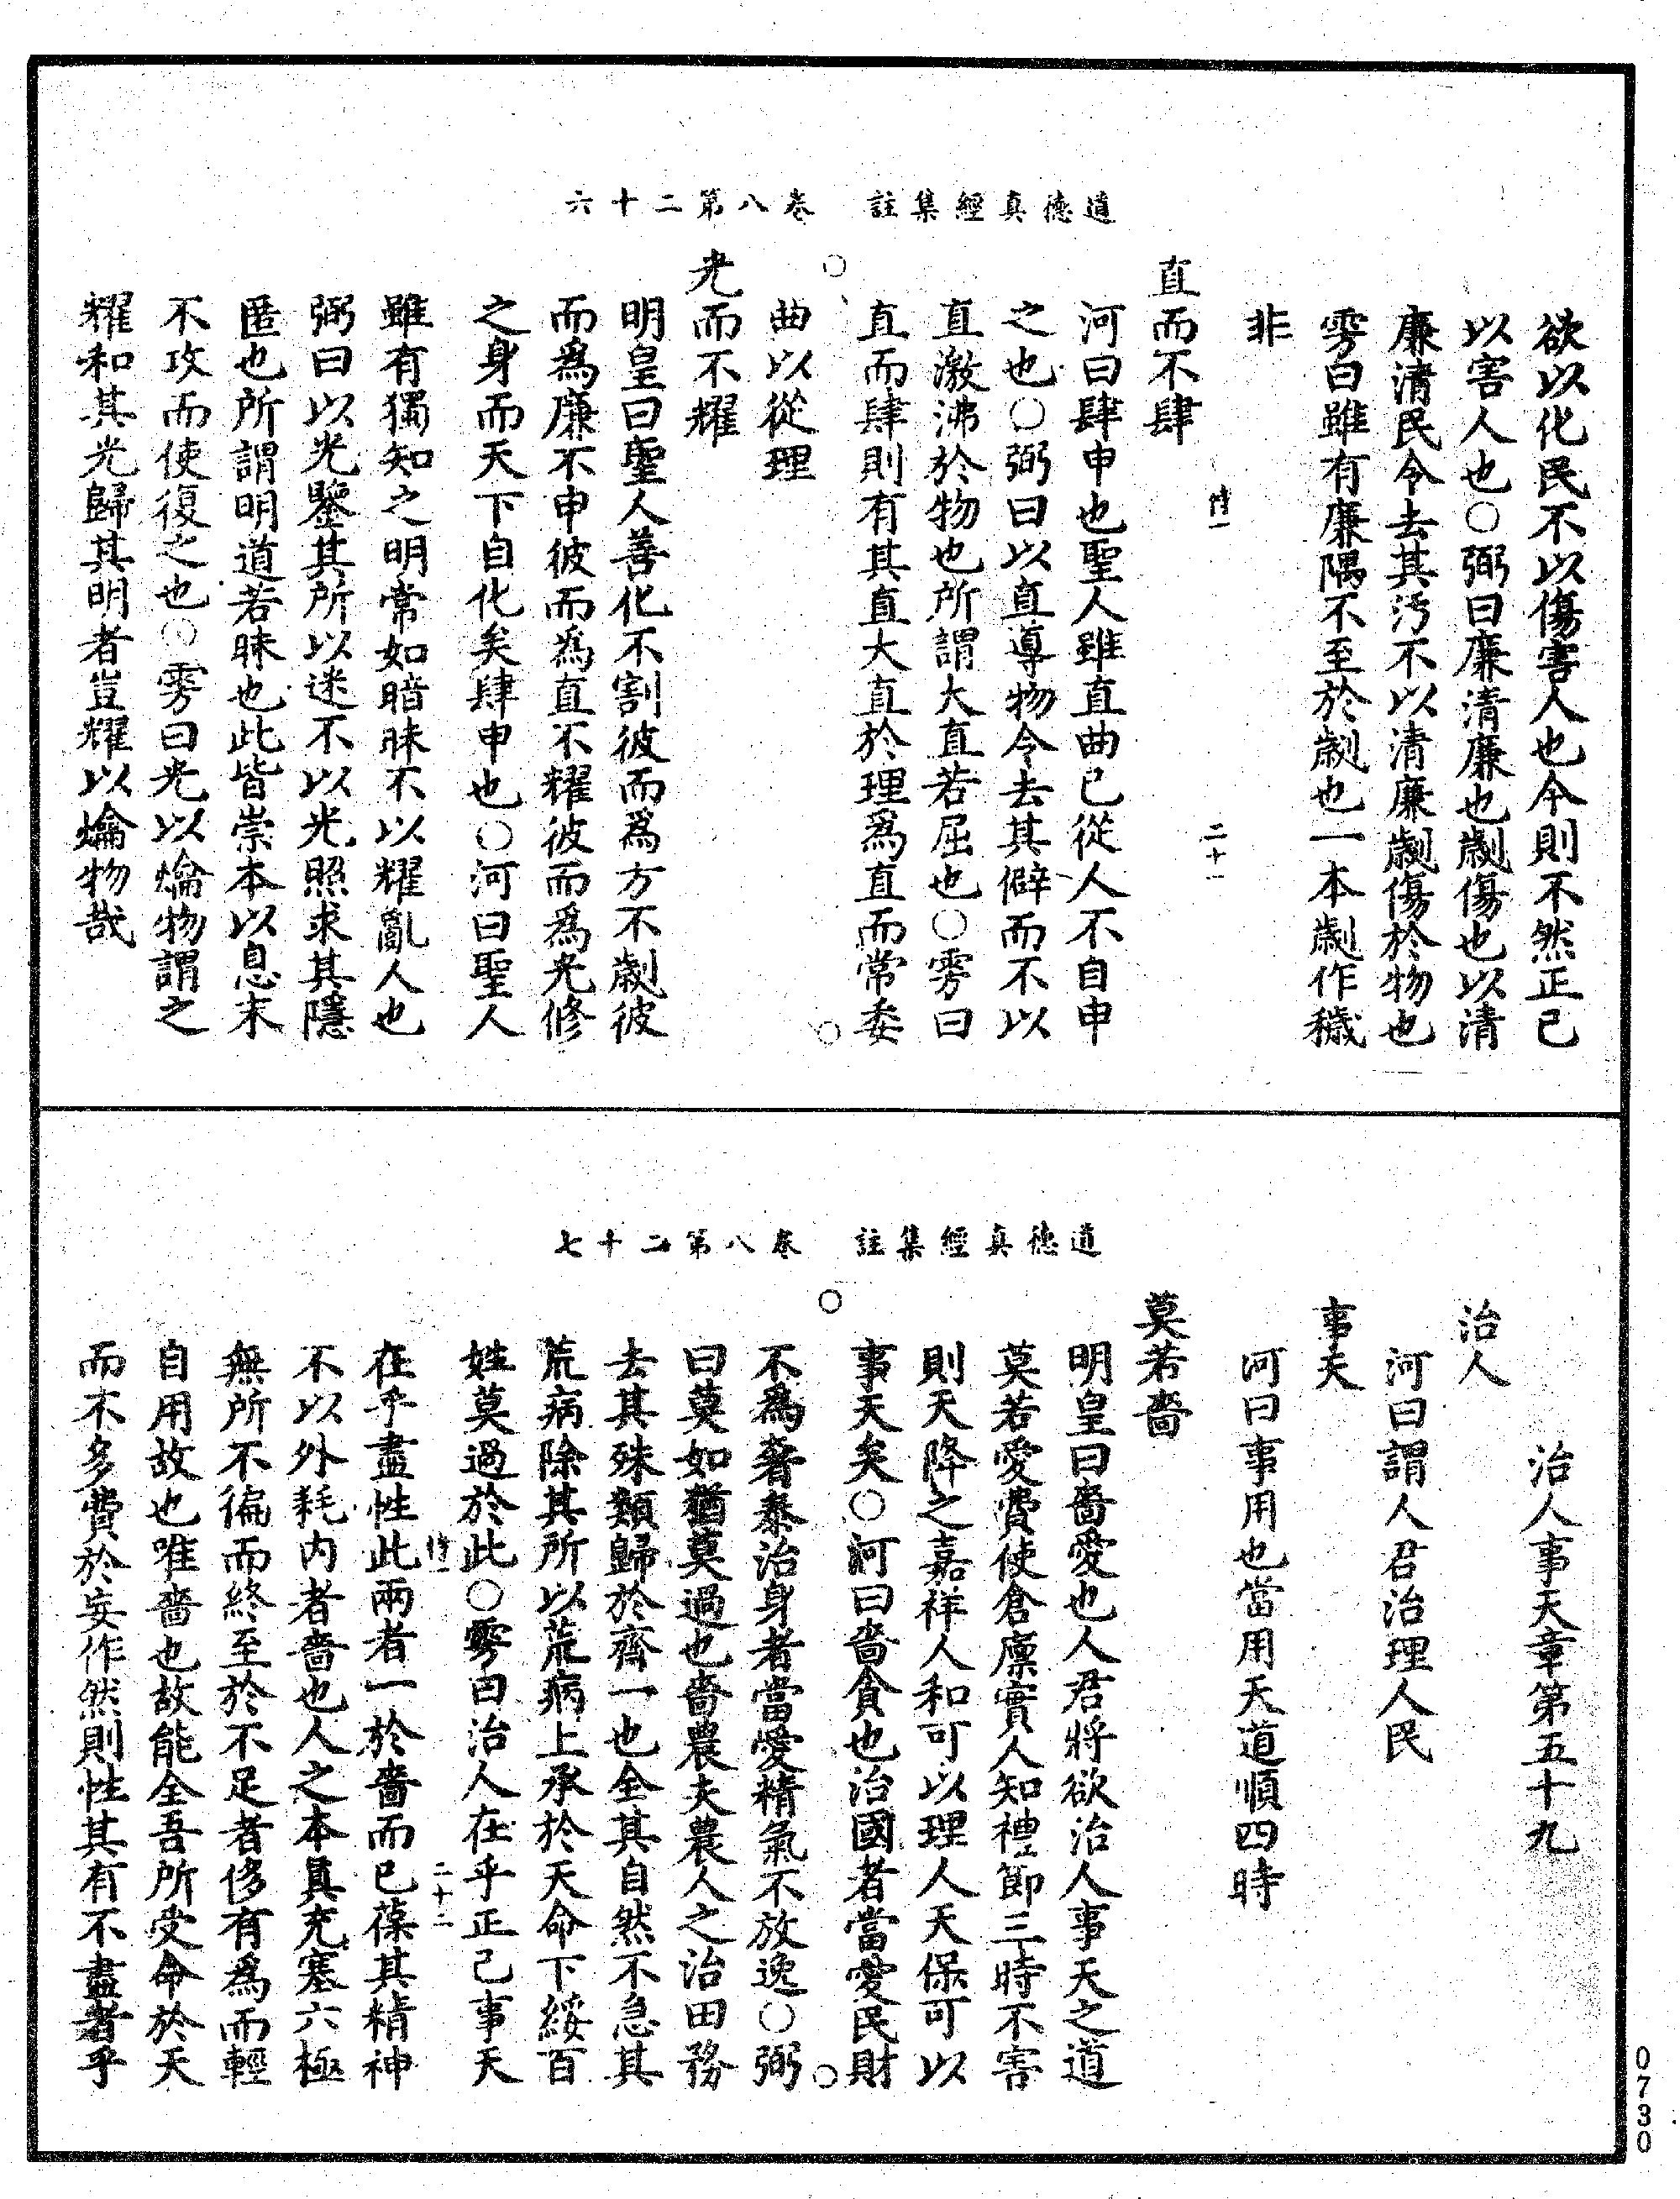 道德真經集註　卷八第二十六
欲以化民不以傷害人也今則不然正已
以害人也○弼曰廉清廉也劌傷也以清
廉清民令去其汚不以清廉劌傷於物也
雱曰雖有廉隅不至於劌也一本劌作穢
非
直而不肆
河曰肆申也聖人雖直曲已從人不自申
之也○弼曰以直導物令去其僻而不以
直激沸於物也所謂大直若屈也○雱曰
直而肆則有其直大直於理爲直而常委
曲以從理
光而不耀
明皇曰聖人善化不割彼而爲方不劌彼
而爲廉不申彼而爲直不耀彼而爲光修
之身而天下自化矣肆申也○河曰聖人
雖有獨知之明常如暗昧不以耀亂人也
弼曰以光鑒其所以迷不以光照求其隱
匿也所謂明道若昧也此皆崇本以息末
不攻而使復之也○雱曰光以爚物謂之
耀和其光歸其明者豈耀以爚物哉
二十一
道德真經集註　卷八第二十七
治人事天章第五十九
治人
河曰謂人君治理人民
事天
河曰事用也當用天道順四時
莫若嗇
明皇曰嗇愛也人君將欲治人事天之道
莫若愛費使倉廩實人知禮節三時不害
則天降之嘉祥人和可以理人天保可以
事天矣○河曰嗇貪也治國者當愛民財
不爲奢泰治身者當愛精氣不放逸○弼
曰莫如猶莫過也嗇農夫農人之治田務
去其殊類歸於齊一也全其自然不急其
荒病除其所以荒病上承於天命下綏百
姓莫過於此○雱曰治人在乎正己事天
在乎盡性此兩者一於嗇而已葆其精神
不以外耗内者嗇也人之本真充塞六極
無所不徧而終至於不足者侈有爲而輕
自用故也唯嗇也故能全吾所受命於天
而不多費於妄作然則性其有不盡者乎
二十二
0730